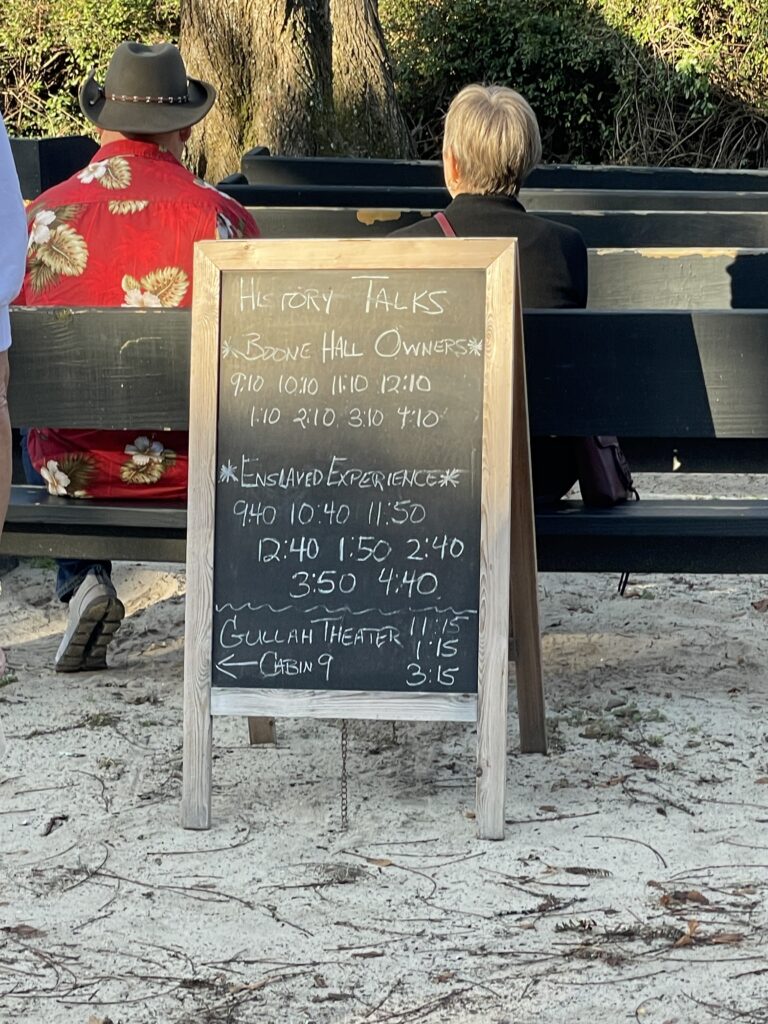 HISTORY TALKS
*BOONE HALL OWNERS*
9:10 10:10 11:10 12:10
1:10 2:10 3:10 4:10
*ENSLAVED EXPERIENCE*
9:40 10:40 11:50
12:40 1:50 2:40
3:50 4:40
GULLAH THEATER 11:15
1:15
← CABIN 9 3:15